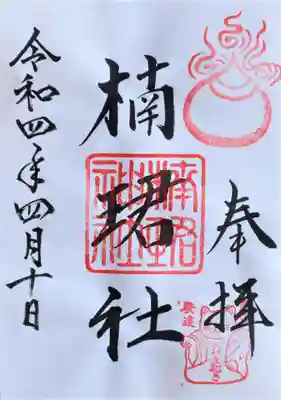 奉拝
楠珺社
令和四年四月十日